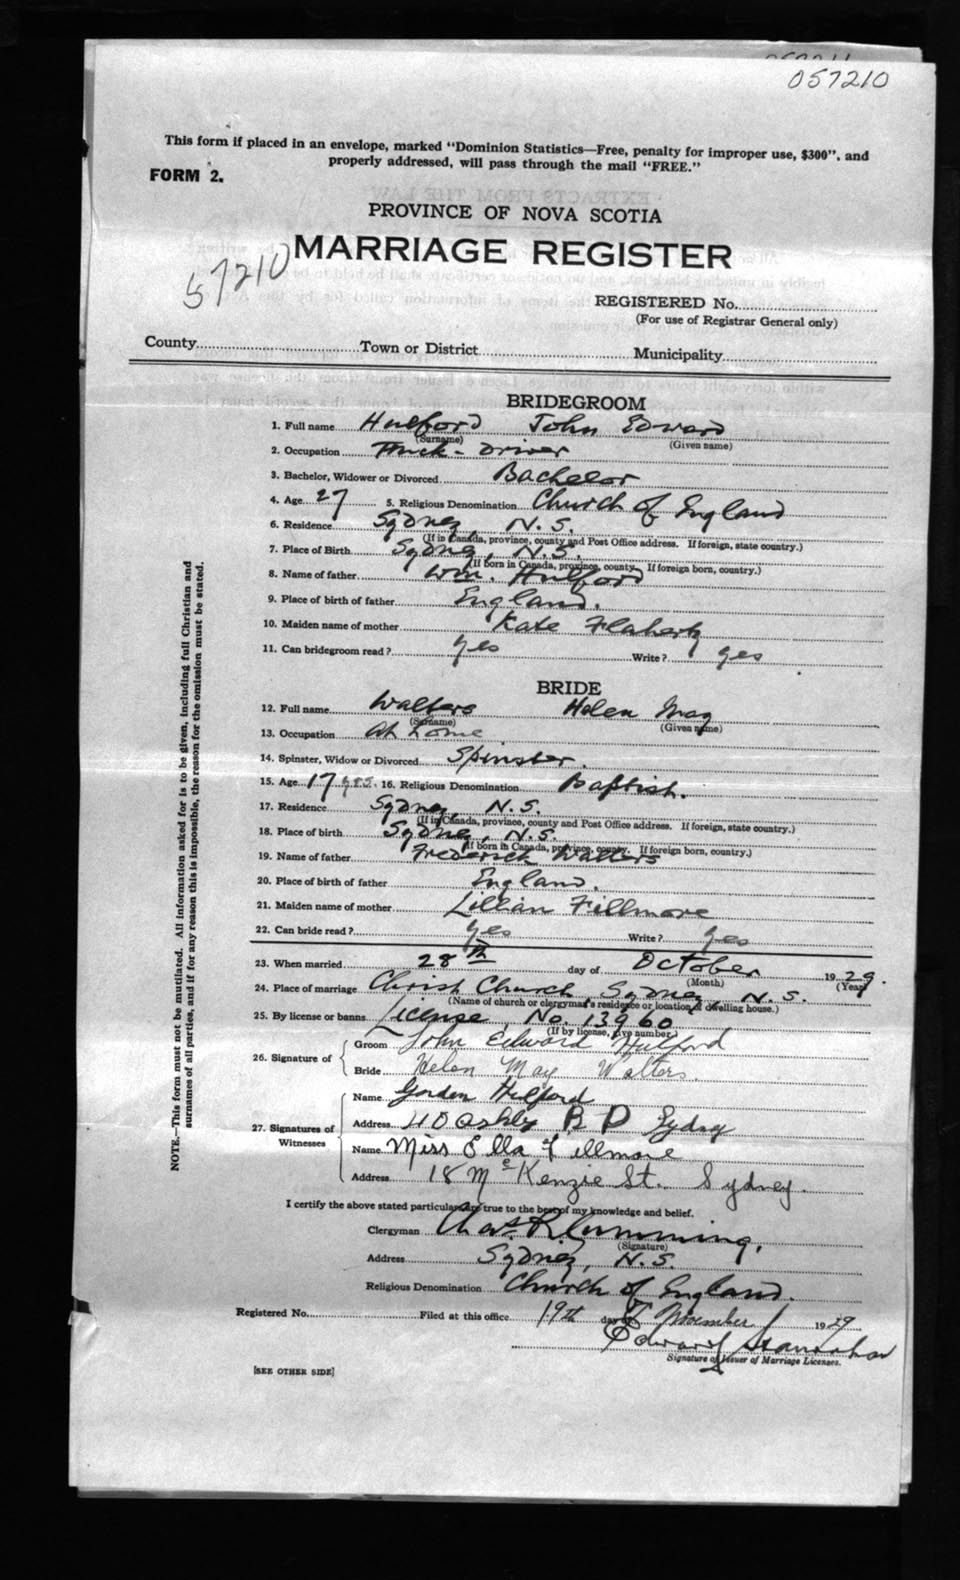 057210
This form if placed in an envelope, marked "Dominion Statistics—Free, penalty for improper use, $300", and
properly addressed, will pass through the mail "FREE."
FORM 2.
PROVINCE OF NOVA SCOTIA
MARRIAGE REGISTER
57210
REGISTERED No.
(For use of Registrar General only)
County Town or District Municipality
BRIDEGROOM
1. Full name Hulford John Edward
(Surname) (Given name)
2. Occupation Truck-Driver
3. Bachelor, Widower or Divorced Bachelor
4. Age 27 5. Religious Denomination Church of England
6. Residence Sydney, N.S.
(If in Canada, province, county and Post Office address. If foreign, state country.)
7. Place of Birth Sydney, N.S.
(If born in Canada, province, county. If foreign born, country.)
8. Name of father Wm. Hulford
9. Place of birth of father England.
10. Maiden name of mother Kate Flaherty
11. Can bridegroom read? yes Write? yes
BRIDE
12. Full name Walters Helen May
(Surname) (Given name)
13. Occupation At home
14. Spinster, Widow or Divorced Spinster.
15. Age 17 yrs. 16. Religious Denomination Baptist.
17. Residence Sydney, N.S.
(If in Canada, province, county and Post Office address. If foreign, state country.)
18. Place of birth Sydney, N.S.
(If born in Canada, province, county. If foreign born, country.)
19. Name of father Frederick Walters
20. Place of birth of father England.
21. Maiden name of mother Lillian Fillmore
22. Can bride read? yes Write? yes
23. When married 28th day of October 1929
(Month) (Year)
24. Place of marriage Christ Church, Sydney, N.S.
(Name of church or clergyman's residence or location of dwelling house.)
25. By license or banns License, No. 13960
(If by license, give number.)
26. Signature of Groom John Edward Hulford
Bride Helen May Walters.
27. Signatures of Witnesses
Name Gordon Hulford
Address 40 Ashby R D Sydney
Name Miss Ella Fillmore
Address 18 McKenzie St. Sydney.
I certify the above stated particulars are true to the best of my knowledge and belief.
Clergyman Chas. R. Cumming,
(Signature)
Address Sydney, N.S.
Religious Denomination Church of England.
Registered No. Filed at this office 19th day of November 1929
Edward
Signature of Issuer of Marriage Licenses.
[SEE OTHER SIDE]
NOTE.—This form must not be mutilated. All information asked for is to be given, including full Christian and
surnames of all parties, and if for any reason this is impossible, the reason for the omission must be stated.